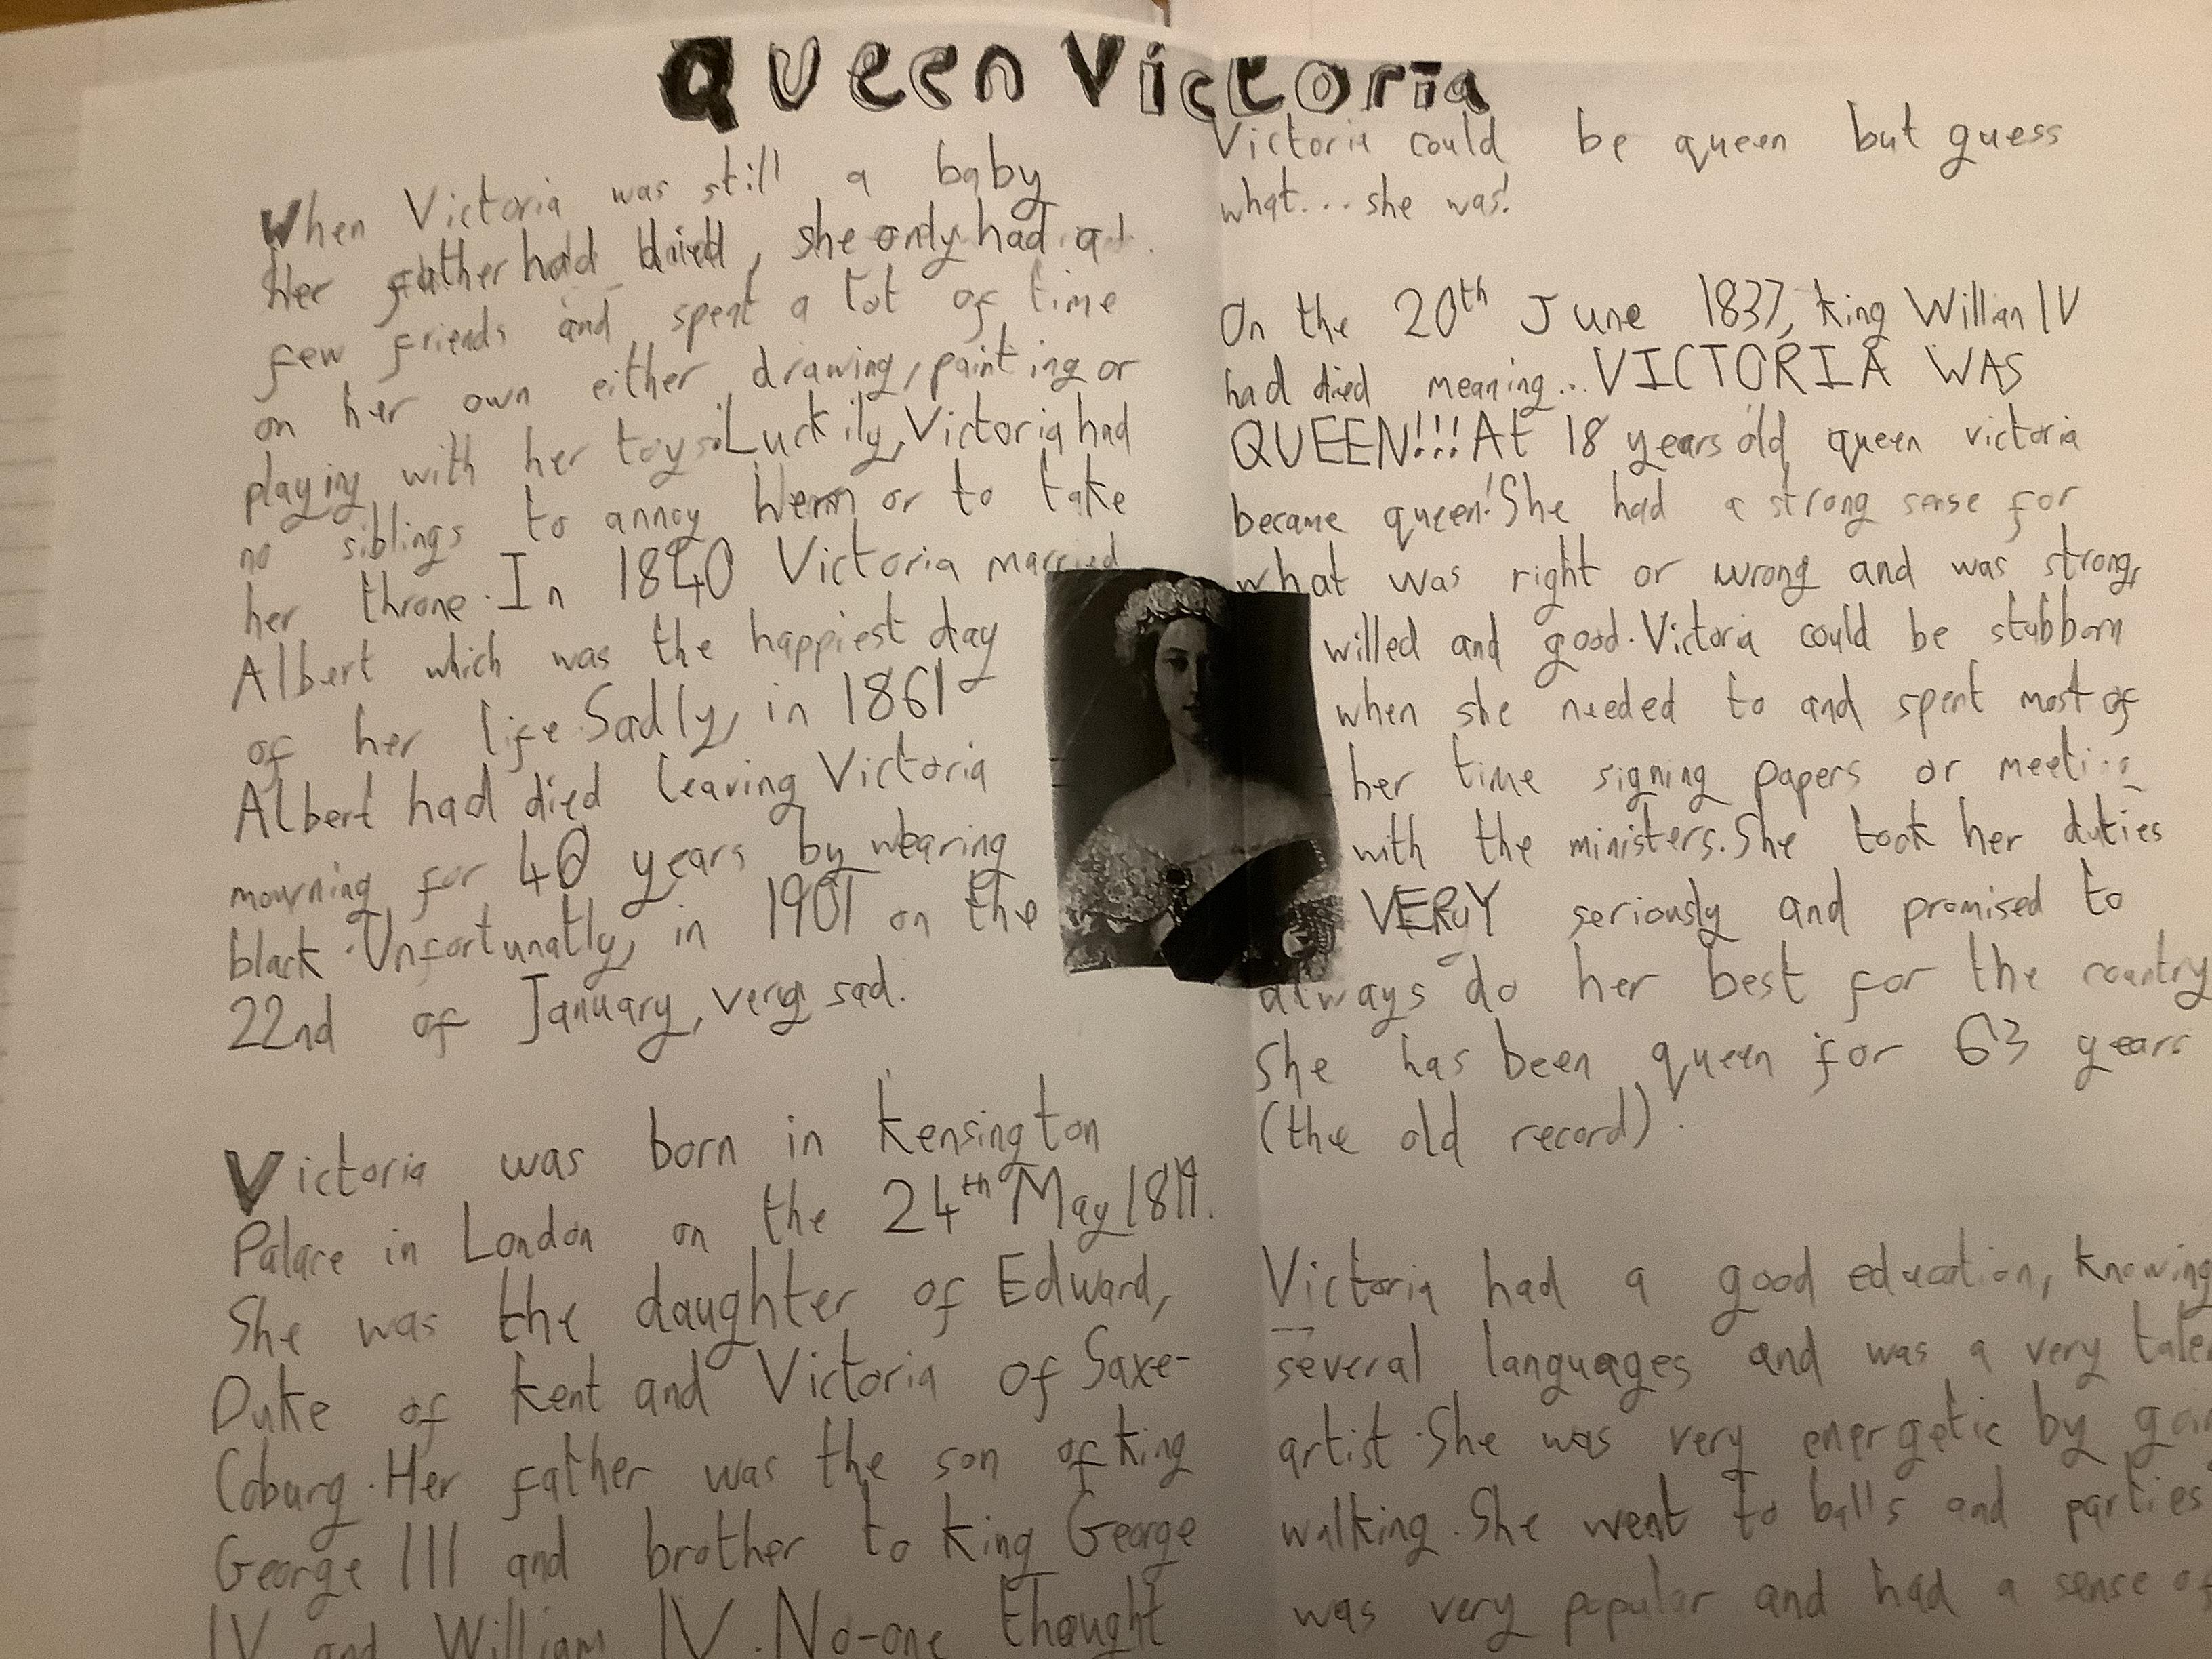 Queen Victoria
When Victoria was still a baby
Her father had died, she only had a
few friends and spent a lot of time
on her own either drawing, painting or
playing with her toys. Luckily, Victoria had
no siblings to annoy her or to take
her throne. In 1840 Victoria married
Albert which was the happiest day
of her life. Sadly, in 1861
Albert had died leaving Victoria
mourning for 40 years by wearing
black. Unfortunatly, in 1901 on the
22nd of January, very sad.
Victoria was born in Kensington
Palace in London on the 24th May 1819.
She was the daughter of Edward,
Duke of Kent and Victoria of Saxe-
Coburg. Her father was the son of king
George III and brother to king George
IV and William IV. No-one thought
Victoria could be queen but guess
what... she was!
On the 20th June 1837, king Willian IV
had died meaning... VICTORIA WAS
QUEEN!!! At 18 years old queen victoria
became queen! She had a strong sense for
what was right or wrong and was strong
willed and good. Victoria could be stubborn
when she needed to and spent most of
her time signing papers or meeting
with the ministers. She took her duties
VERY seriously and promised to
always do her best for the country
She has been queen for 63 years
(the old record).
Victoria had a good education, knowing
several languages and was a very
artist. She was very energetic by
walking. She went to balls and parties
was very popular and had a sense of